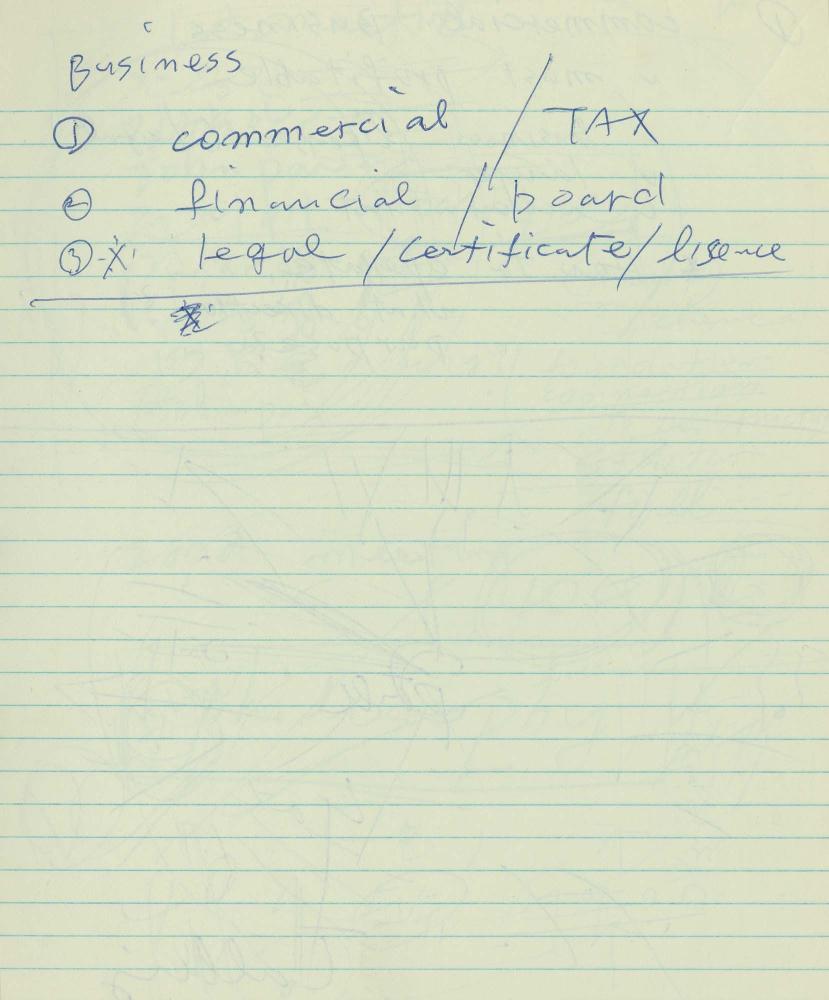 Business
① commercial / TAX
② financial / board
③ legal / certificate / lisence